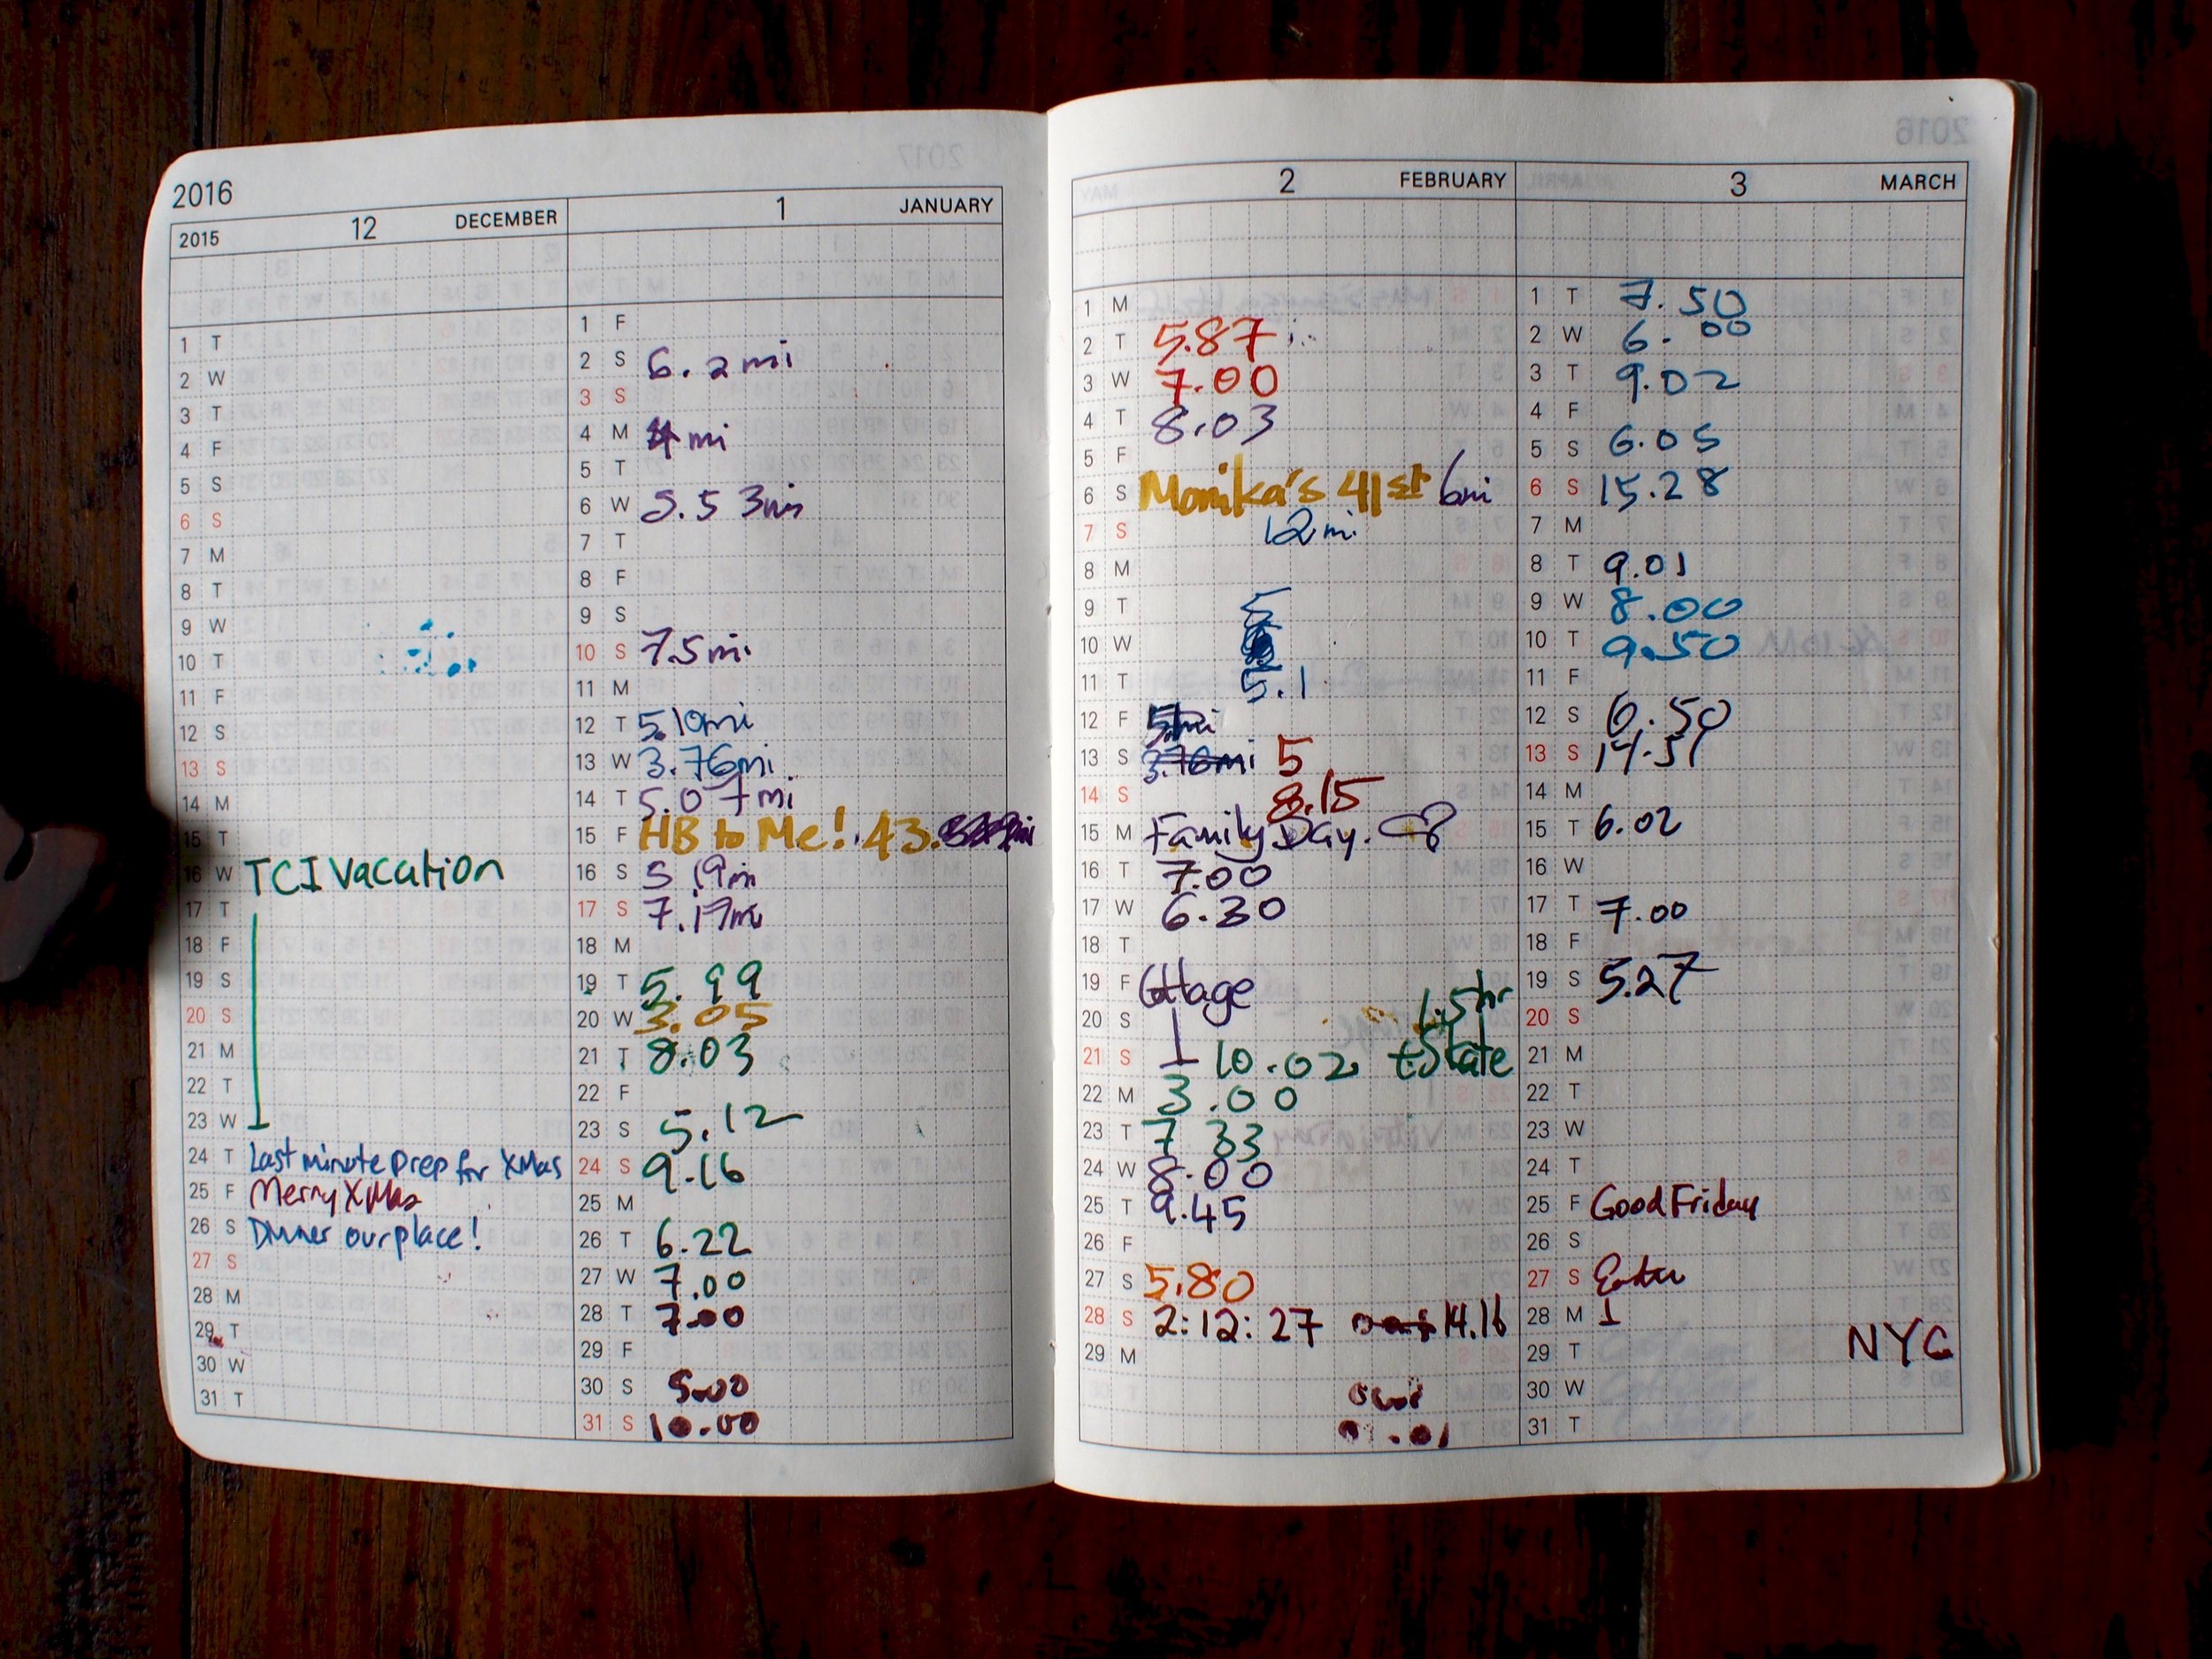 2016
2015 12 DECEMBER
1 T
2 W
3 T
4 F
5 S
6 S
7 M
8 T
9 W
10 T
11 F
12 S
13 S
14 M
15 T
16 W TCI vacation
17 T
18 F
19 S
20 S
21 M
22 T
23 W
24 T Last minute prep for XMas
25 F Merry XMas
26 S Dinner our place!
27 S
28 M
29 T
30 W
31 T
1 JANUARY
1 F
2 S 6.2mi
3 S
4 M 4 mi
5 T
6 W
7 T
8 F
9 S
10 S 7.5mi
11 M
12 T 5.10mi
13 W 3.76mi
14 T 5.07mi
15 F HB to Me! 43.
16 S 5.19mi
17 S 7.17mi
18 M
19 T 5.99
20 W 3.05
21 T 8.03
22 F
23 S 5.12
24 S 9.16
25 M
26 T 6.22
27 W 7.00
28 T 7.00
29 F
30 S 5.00
31 S 10.00
2 FEBRUARY
1 M
2 T 5.87
3 W 7.00
4 T 8.03
5 F
6 S Monika's 41st 6mi
7 S 12mi
8 M
9 T 5
10 W
11 T 5.1
12 F
13 S 3.76mi 5
14 S 8.15
15 M Family Day.
16 T 7.00
17 W 6.30
18 T
19 F Cottage
20 S 1.5hr
21 S 10.02 skate
22 M 3.00
23 T 7 33
24 W 8.00
25 T 9.45
26 F
27 S 5.80
28 S 2:12:27 14.16
29 M
3 MARCH
1 T 7.50
2 W 6.00
3 T 9.02
4 F
5 S 6.05
6 S 15.28
7 M
8 T 9.01
9 W 8.00
10 T 9.50
11 F
12 S 6.50
13 S 14.51
14 M
15 T 6.02
16 W
17 T 7.00
18 F
19 S 5.27
20 S
21 M
22 T
23 W
24 T
25 F Good Friday
26 S
27 S Easter
28 M
29 T NYC
30 W
31 T